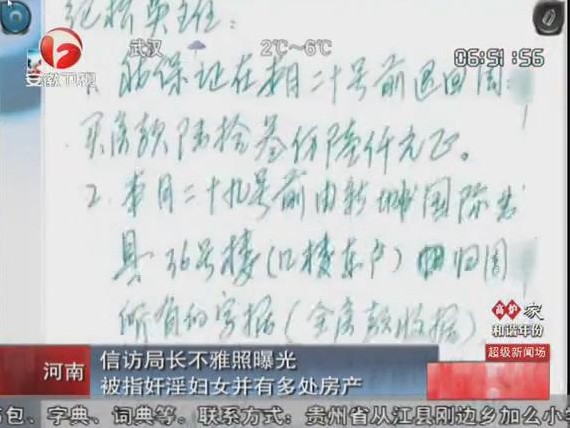 武汉 2℃～6℃
06:51:56
安徽卫视
保证在本月二十号前退回周
买房款陆拾叁万陆仟元正。
2. 本月二十九号前由新城国际出
具36号楼（12楼东户）归周
所有的字据（全房款收据）
高炉家
和谐年份
超级新闻场
河南
信访局长不雅照曝光
被指奸淫妇女并有多处房产
包、字典、词典等。联系方式：贵州省从江县刚边乡加么小学